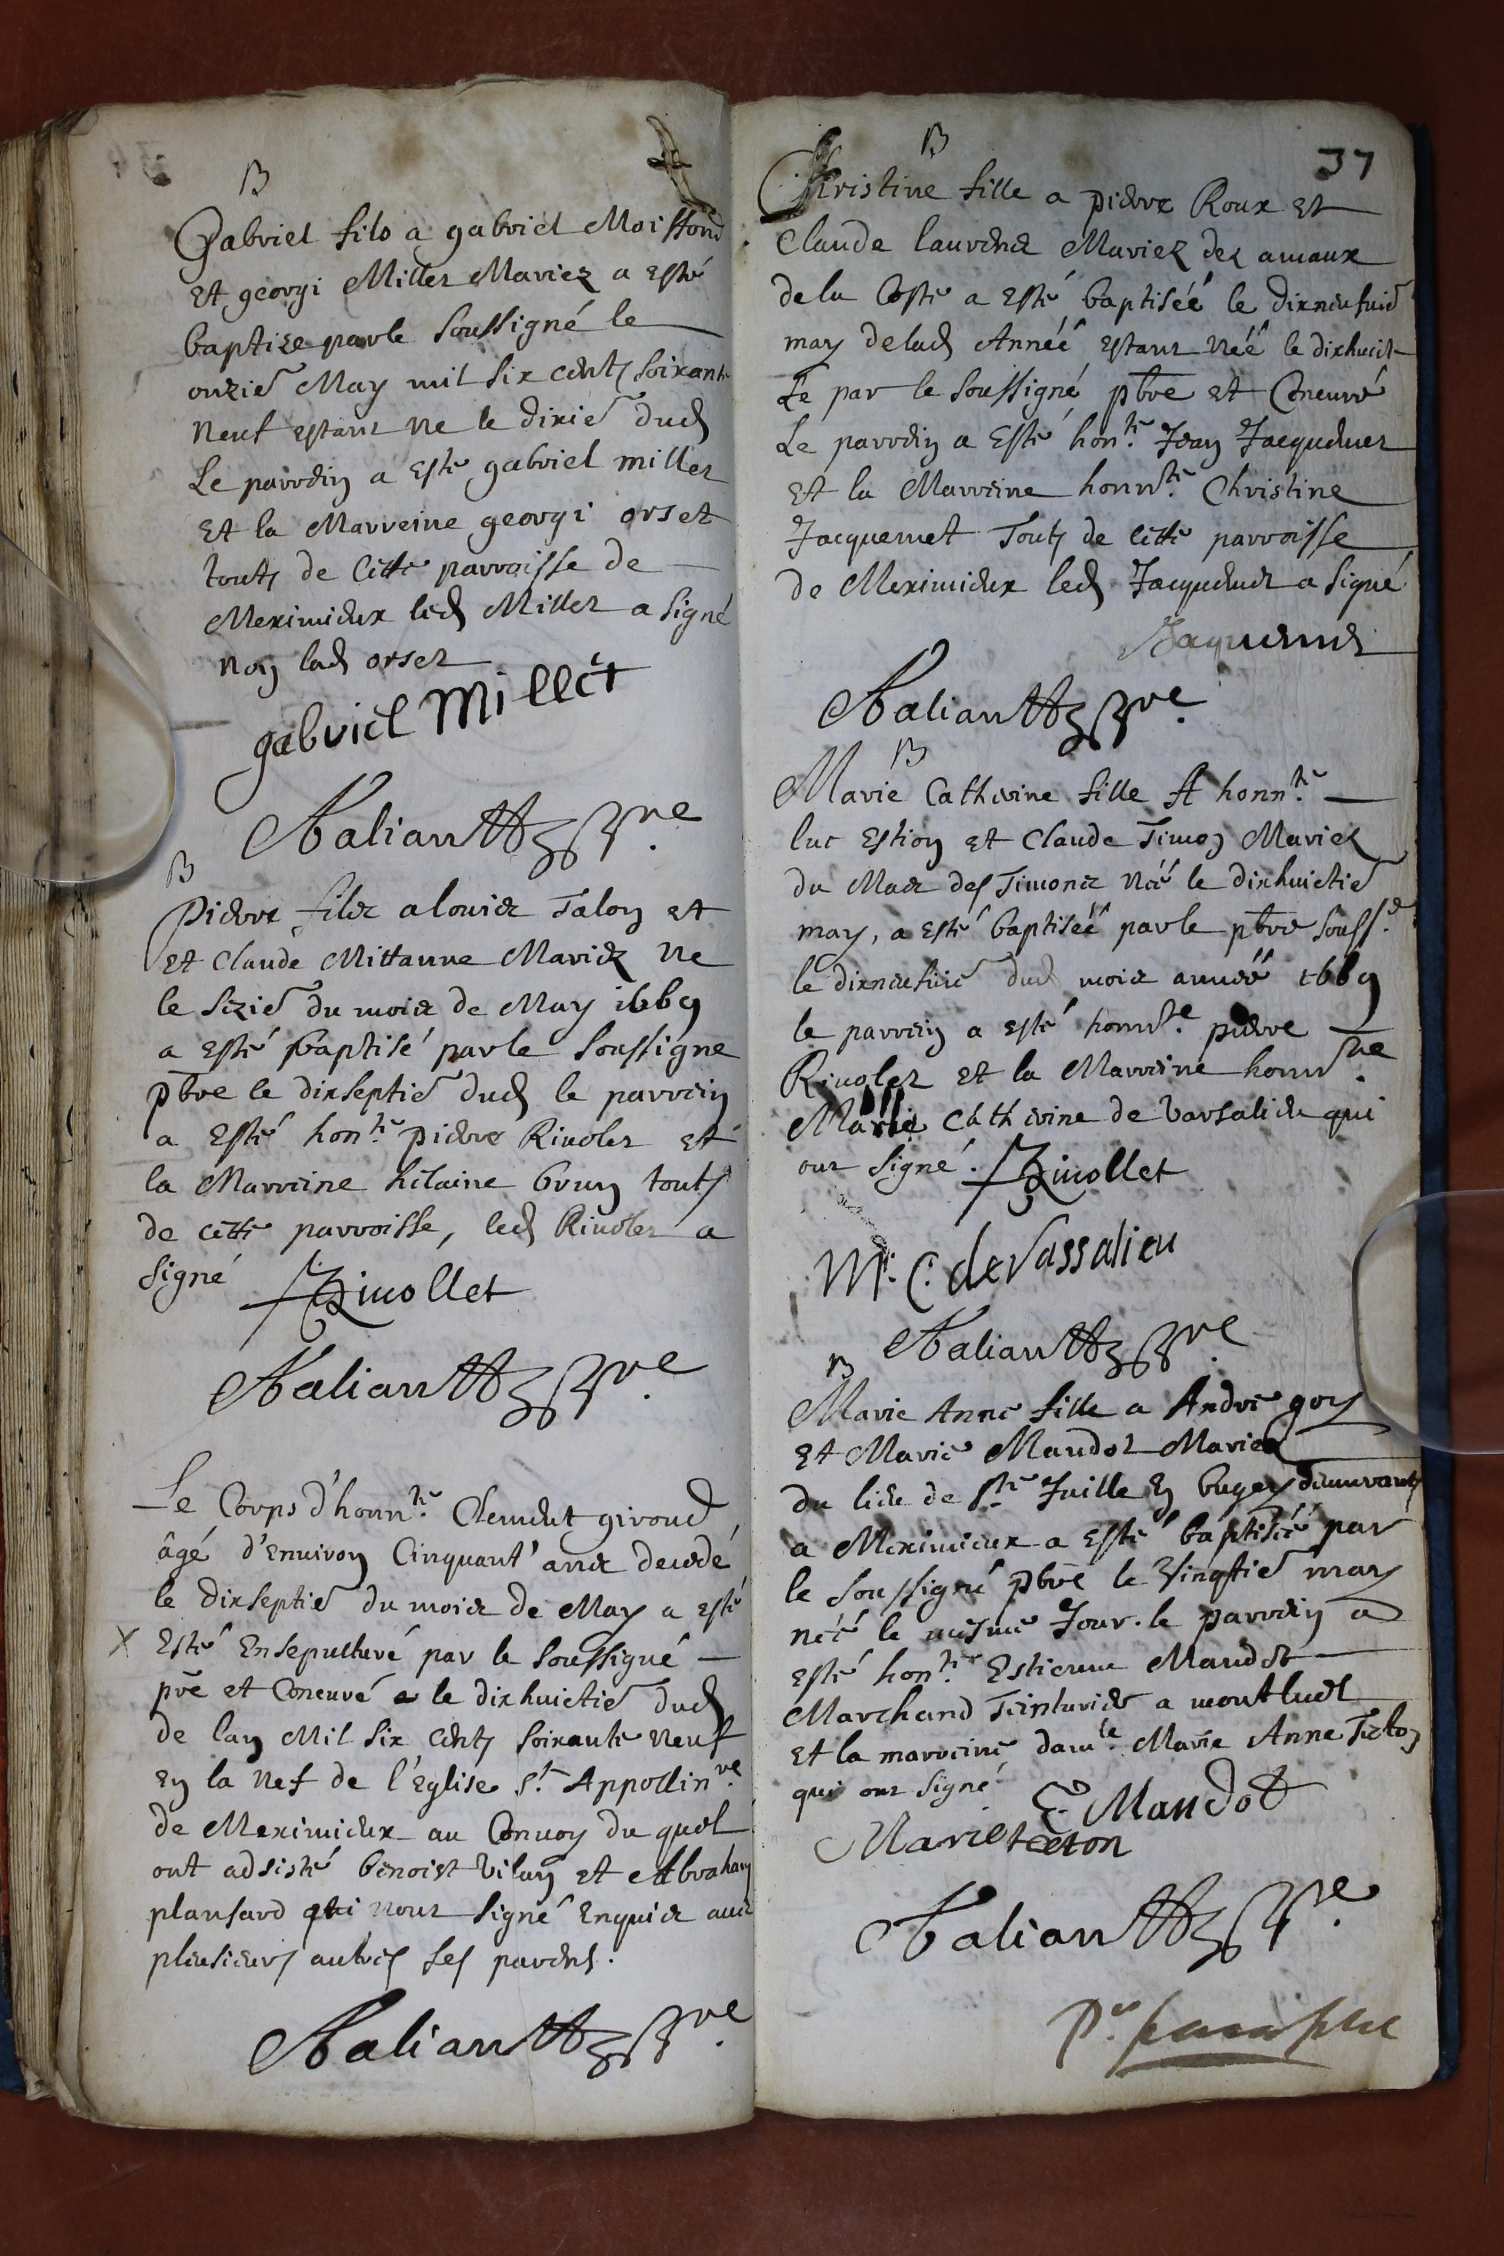 B
Gabriel fils a gabriel Moissond
Et georgi Millet Mariez a esté
baptize par le soussigné le
onzie May mil six cents soixante
neuf estant ne le dixie dud
Le parrein a esté gabriel millet
Et la Marreine georgi orset
touts de cette parroisse de
Meximieux led Millet a signé
non lad orset
gabriel Millet
pbre
B
Pierre fils a louis Talon et
et Claude Mittanne Mariez ne
le sezie du mois de May 1669
a esté baptisé par le soussigne
pbre le dixseptie dud le parrein
a esté honte pierre Riuolet et
la Marreine hilaire brun touts
de cette parroisse, led Riuolet a
signé Riuollet
pbre
Le Corps d'honnte Clement giroud
âgé d'enuiron Cinquant' ans decedé
le dixseptie du mois de May a esté
X Esté Ensepulturé par le soussigné
pre et Concuré le dixhuictie dud
de lan Mil six cents soixante neuf
En la Nef de l'Eglise St Appollinre
de Meximieux au Conuoy du quel
ont adsisté benoist vilan et Abraham
plansard qui nont signé Enquis auec
plusieurs autres ses parens.
pbre
37
B
Christine fille a pierre Roux et
Claude laurens Mariez des amaux
de la Coste a esté baptiséé le dixneufuie
may de lad Annéé estant néé le dixhuict
Le par le soussigné pbre et Concuré
Le parrein a esté honte Jean Jacquemet
et la Marreine honnte Christine
Jacquemet Touts de cette parroisse
de Meximieux led Jacquemet a signé
Jaquemet
pbre
B
Marie Catherine fille A honnte
luc Estion et Claude Timon Mariez
du Mas des Timons néé le dixhuictie
may, a esté baptiséé par le pbre souss.e
le dixneufuie dud mois annéé 1669
le parrein a esté honnte pierre
Riuolet et la Marreine honnte
Marie Catherine de Varsalieu qui
ont signé. Riuollet
M. C. de Vassalieu
pbre
B
Marie Anne fille a André goy
et Marie Mandot Mariez
du lieu de Ste Juille En bugey demeurants
a Meximieux a esté baptiséé par
le soussigné pbre le vingtie may
néé le mesme Jour. le parrein a
esté honte Estienne Mandot
Marchand Teinturier a montluel
et la marreine damlle Marie Anne Teton
qui ont signé
E. Mandot
Marie teton
pbre